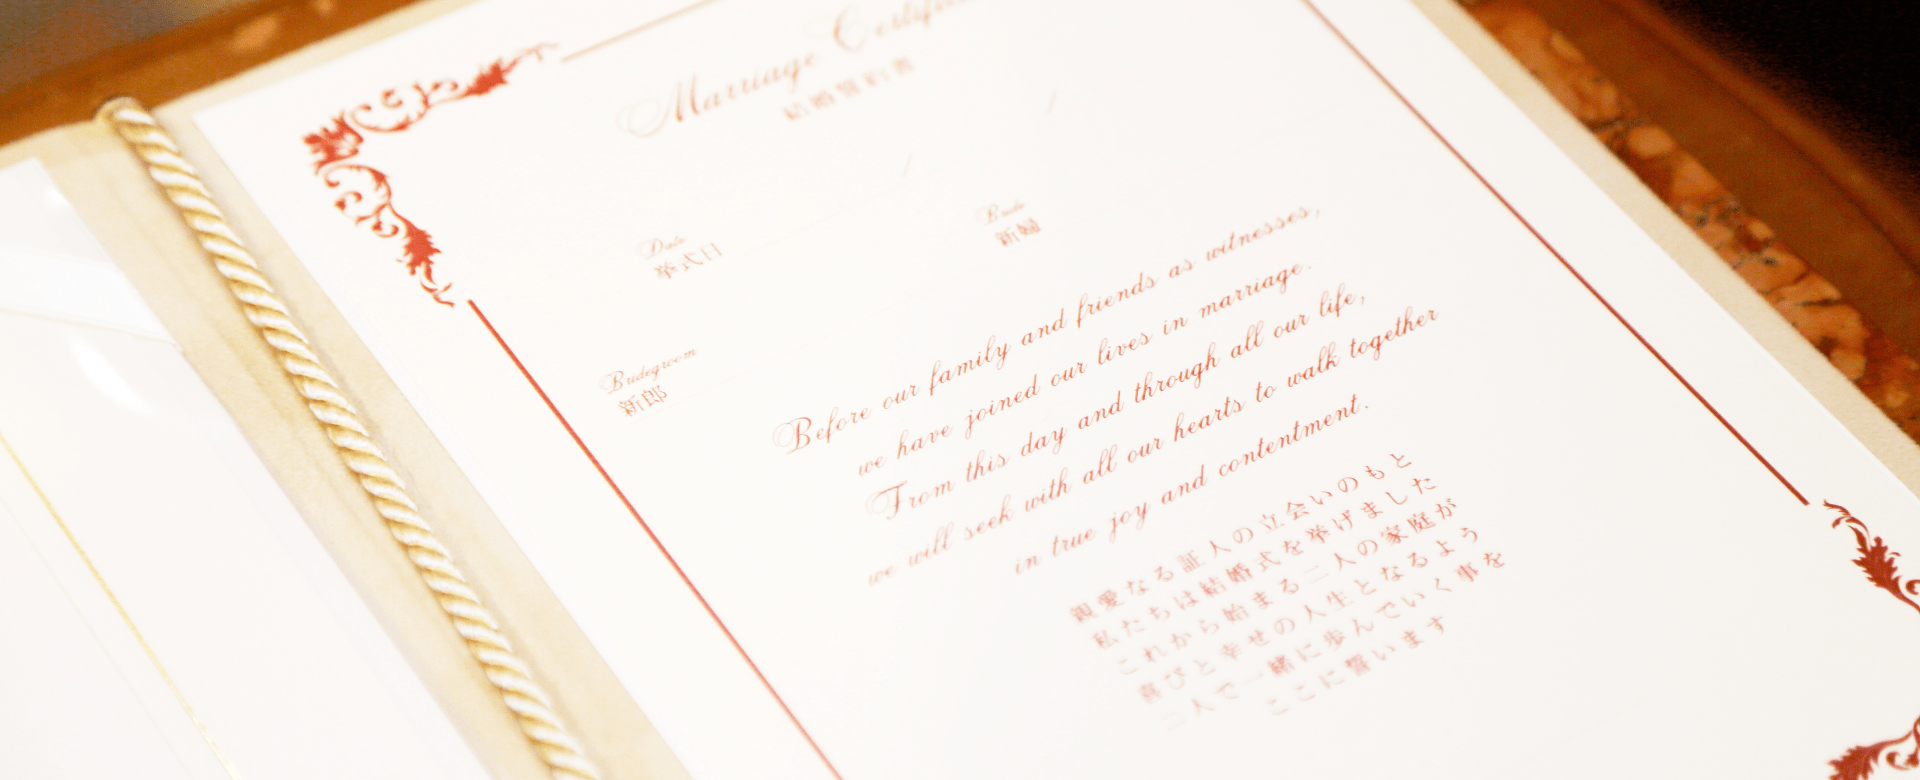 Marriage
結婚誓約書
Date
挙式日
Bride
新婦
Bridegroom
新郎
Before our family and friends as witnesses,
we have joined our lives in marriage.
From this day and through all our life,
we will seek with all our hearts to walk together
in true joy and contentment.
親愛なる証人の立会いのもと
私たちは結婚式を挙げました
これから始まる二人の家庭が
喜びと幸せの人生となるよう
二人で一緒に歩んでいく事を
ここに誓います